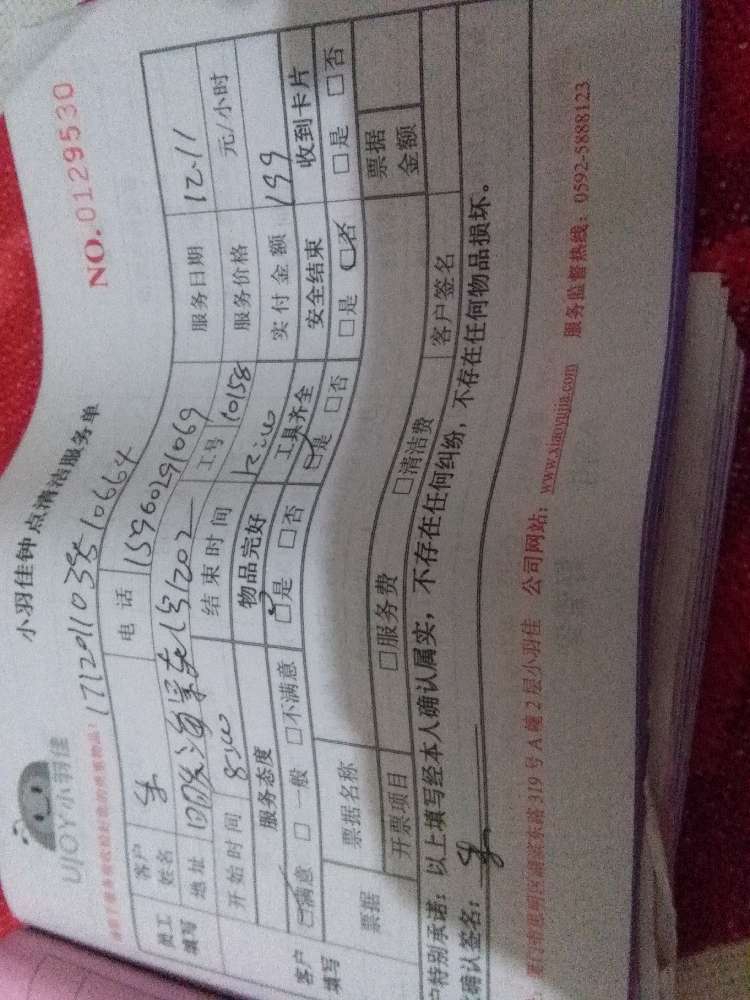 UJOY小羽佳
小羽佳钟点清洁服务单
NO.0129530
员工填写
客户姓名
电话 15960291069
服务日期 12.11
地址
服务价格 元/小时
开始时间
结束时间
工号 10158
实付金额 199
客户填写
服务态度 物品完好 工具齐全 安全结束 收到卡片
□满意 □一般 □不满意 □是 □否 □是 □否 □是 □否 □是 □否
票据
票据名称
票据金额
开票项目 □服务费 □清洁费
客户签名
户特别承诺：以上填写经本人确认属实，不存在任何纠纷，不存在任何物品损坏。
确认签名：
319号A幢2层小羽佳 公司网站：www.xiaoyujia.com 服务监督热线：0592-5888123